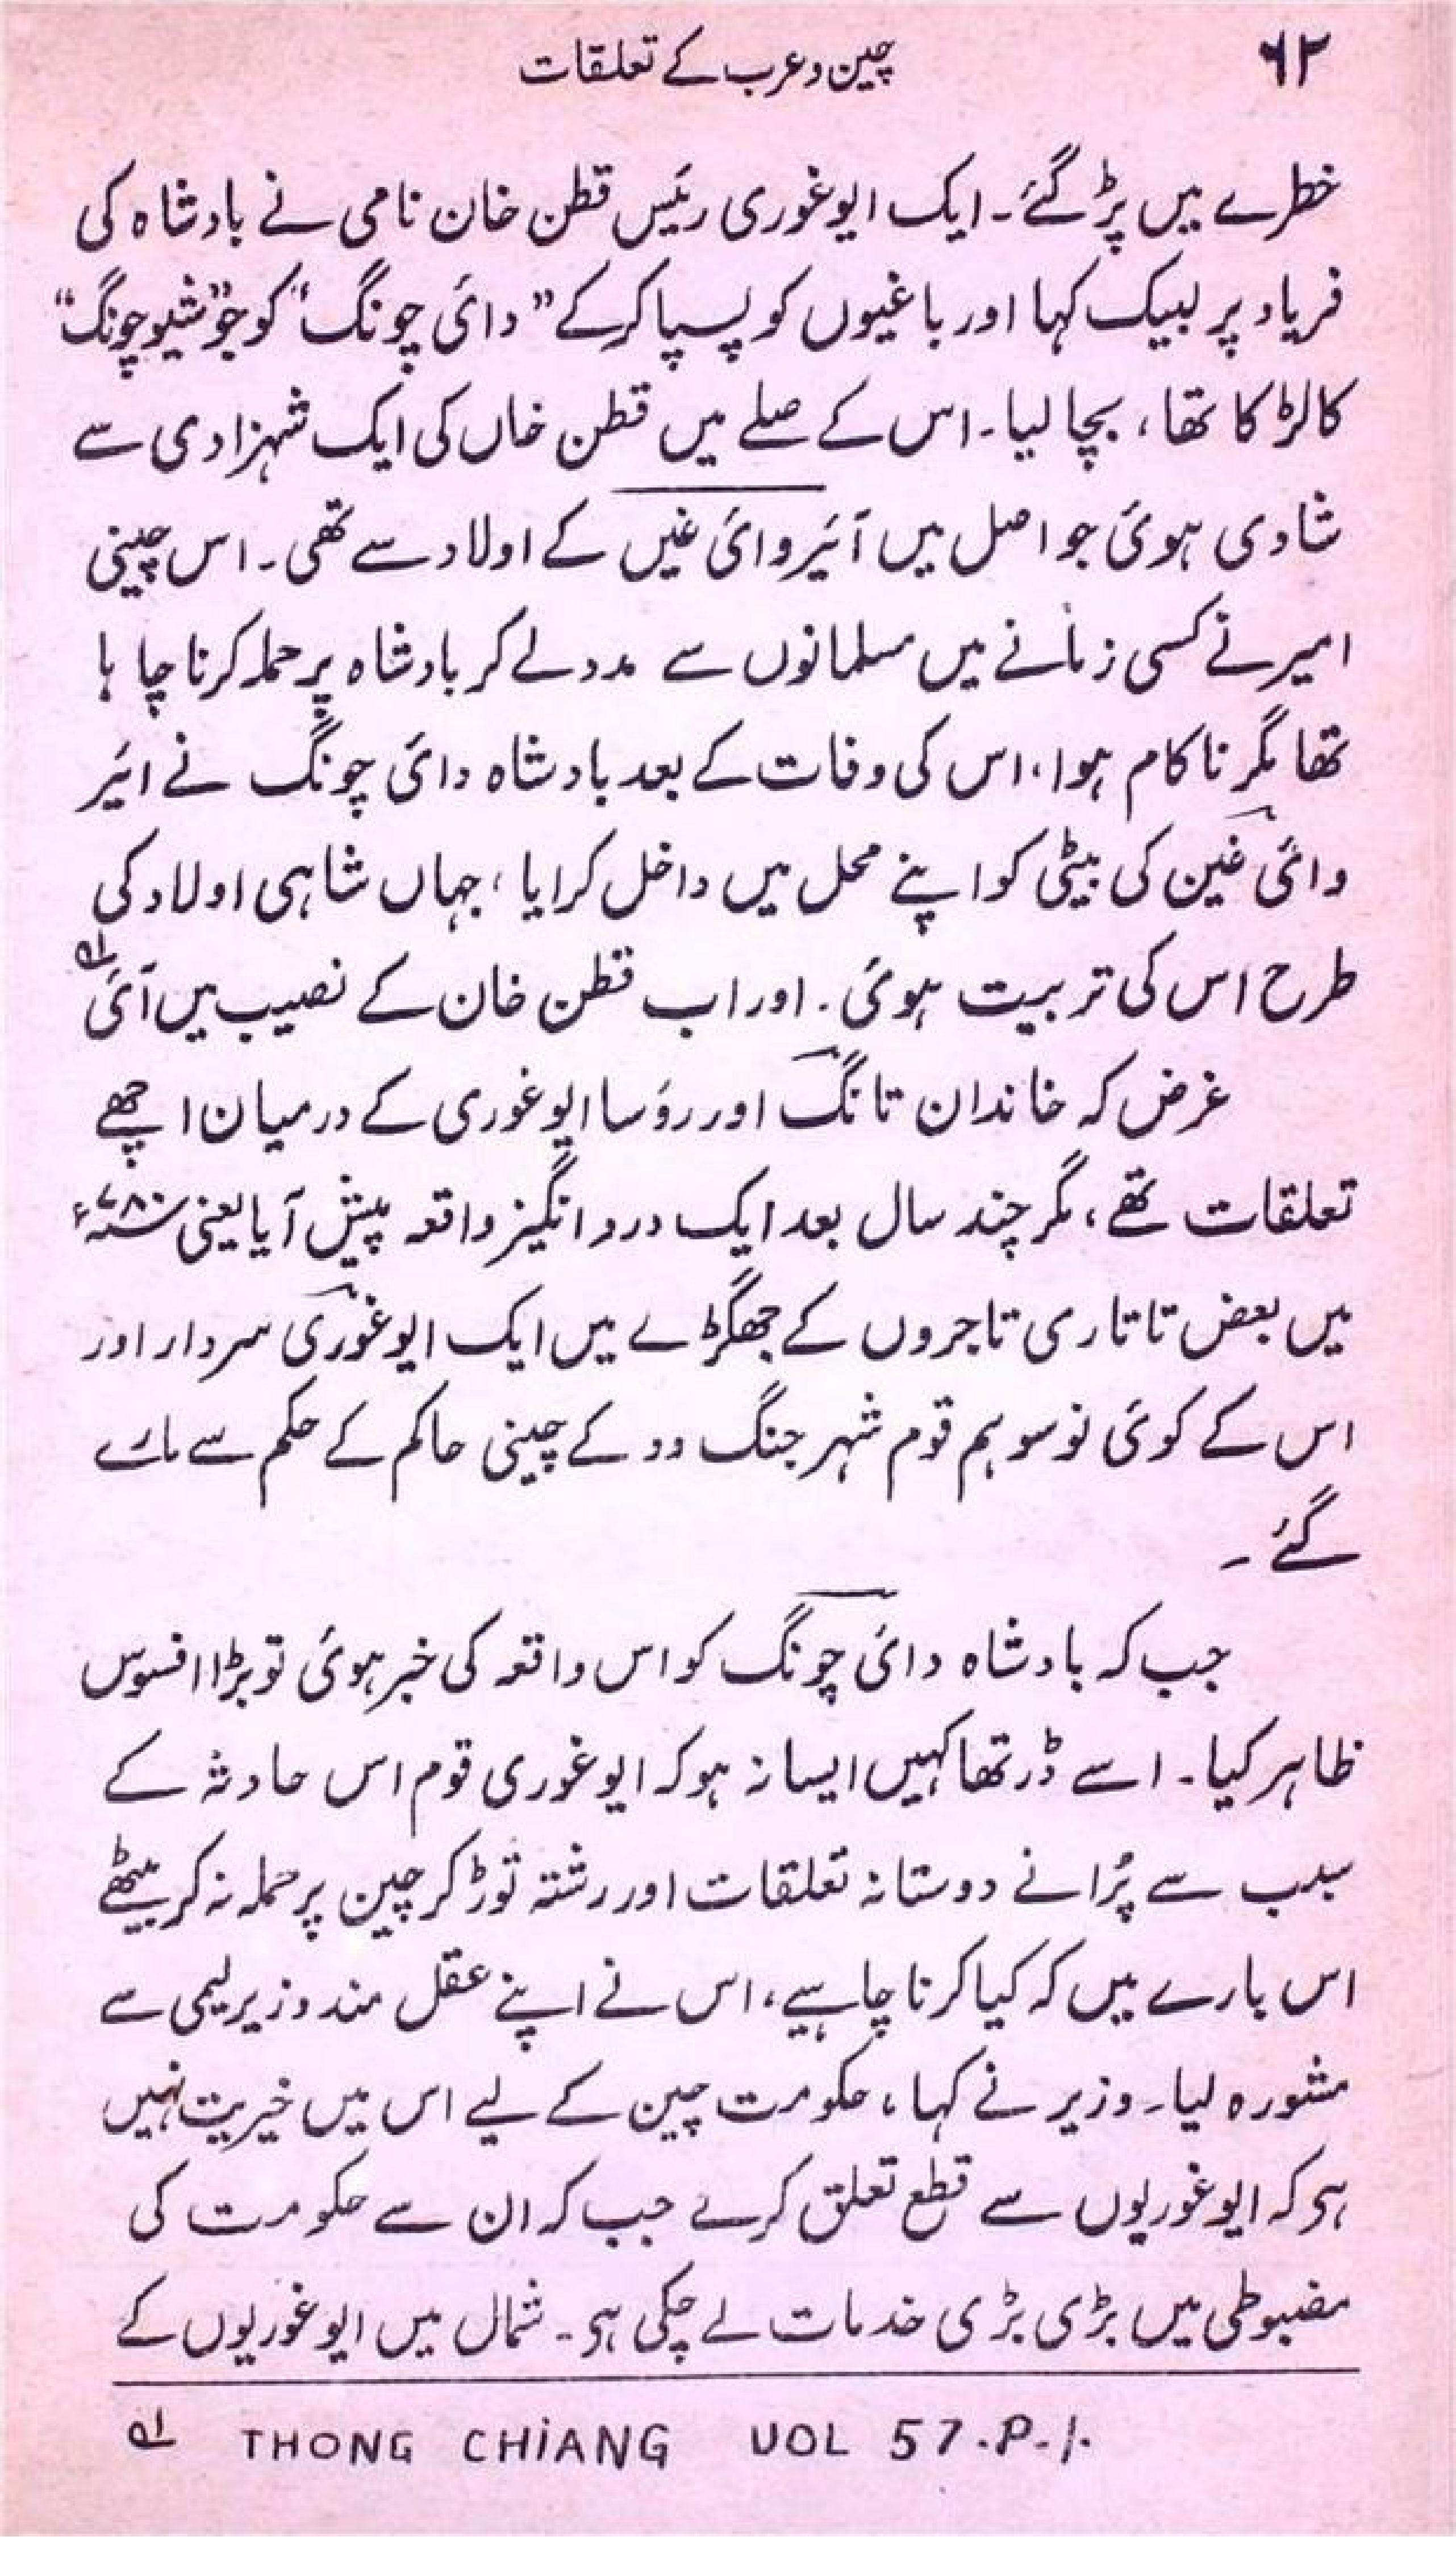 ۶۲
چین و عرب کے تعلقات
خطرے میں پڑ گئے۔ ایک ایوغوری رئیس قطن خان نامی نے بادشاہ کی
فریاد پر لبیک کہا اور باغیوں کو پسپا کرکے ”دائی چونگ“ کو جو ”شیوچونگ“
کا لڑکا تھا، بچا لیا۔ اس کے صلے میں قطن خاں کی ایک شہزادی سے
شادی ہوئی جو اصل میں آئیر وائی غیں کے اولاد سے تھی۔ اس چینی
امیر نے کسی زمانے میں مسلمانوں سے مدد لے کر بادشاہ پر حملہ کرنا چاہا
تھا مگر ناکام ہوا، اس کی وفات کے بعد بادشاہ دائی چونگ نے ائیر
وائی غین کی بیٹی کو اپنے محل میں داخل کرایا، جہاں شاہی اولاد کی
طرح اس کی تربیت ہوئی۔ اور اب قطن خان کے نصیب میں آئی؎۱
غرض کہ خاندان تانگ اور رؤسا ایوغوری کے درمیان اچھے
تعلقات تھے، مگر چند سال بعد ایک درد انگیز واقعہ پیش آیا یعنی ۷۸۰ء
میں بعض تاتاری تاجروں کے جھگڑے میں ایک ایوغوری سردار اور
اس کے کوئی نو سو ہم قوم شہر جنگ دو کے چینی حاکم کے حکم سے مارے
گئے۔
جب کہ بادشاہ دائی چونگ کو اس واقعہ کی خبر ہوئی تو بڑا افسوس
ظاہر کیا۔ اسے ڈر تھا کہیں ایسا نہ ہو کہ ایوغوری قوم اس حادثہ کے
سبب سے پُرانے دوستانہ تعلقات اور رشتہ توڑ کر چین پر حملہ نہ کر بیٹھے
اس بارے میں کہ کیا کرنا چاہیے، اس نے اپنے عقل مند وزیر لیمی سے
مشورہ لیا۔ وزیر نے کہا، حکومت چین کے لیے اس میں خیریت نہیں
ہی کہ ایوغوریوں سے قطع تعلق کرے جب کہ ان سے حکومت کی
مضبوطی میں بڑی بڑی خدمات لے چکی ہی۔ شمال میں ایوغوریوں کے
؎۱ THONG CHiANG VOL 57.P.1.